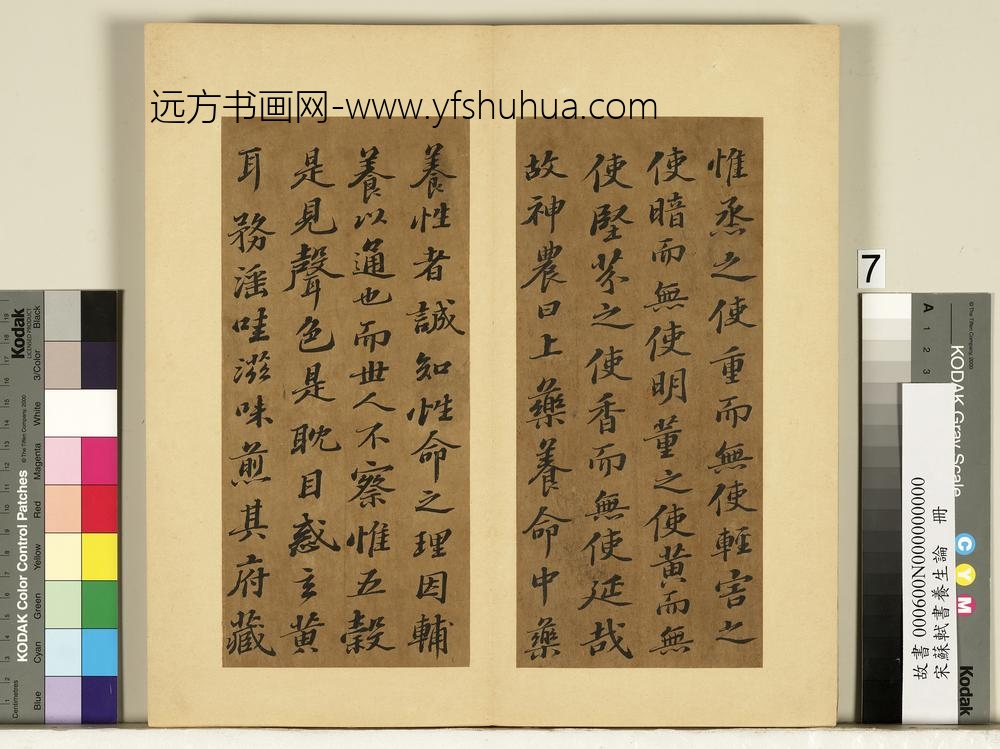 远方书画网-www.yfshuhua.com
惟烝之使重而無使輕害之
使暗而無使明薰之使黃而無
使堅芬之使香而無使延哉
故神農曰上藥養命中藥
養性者誠知性命之理因輔
養以通也而世人不察惟五穀
是見聲色是耽目惑玄黃
耳務淫哇滋味煎其府藏
7
故書 000600N000000000
宋蘇軾書養生論 冊
KODAK Gray Scale
A 1 2 3
C Y M
Kodak
© The Tiffen Company, 2000
Kodak
LICENSED PRODUCT
KODAK Color Control Patches
© The Tiffen Company, 2000
Blue Cyan Green Yellow Red Magenta White 3/Color Black
Centimetres